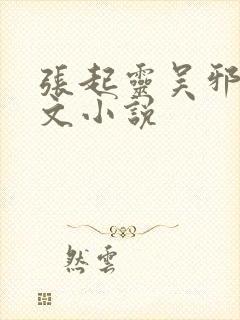 張起靈吴邪
文小説
然雲